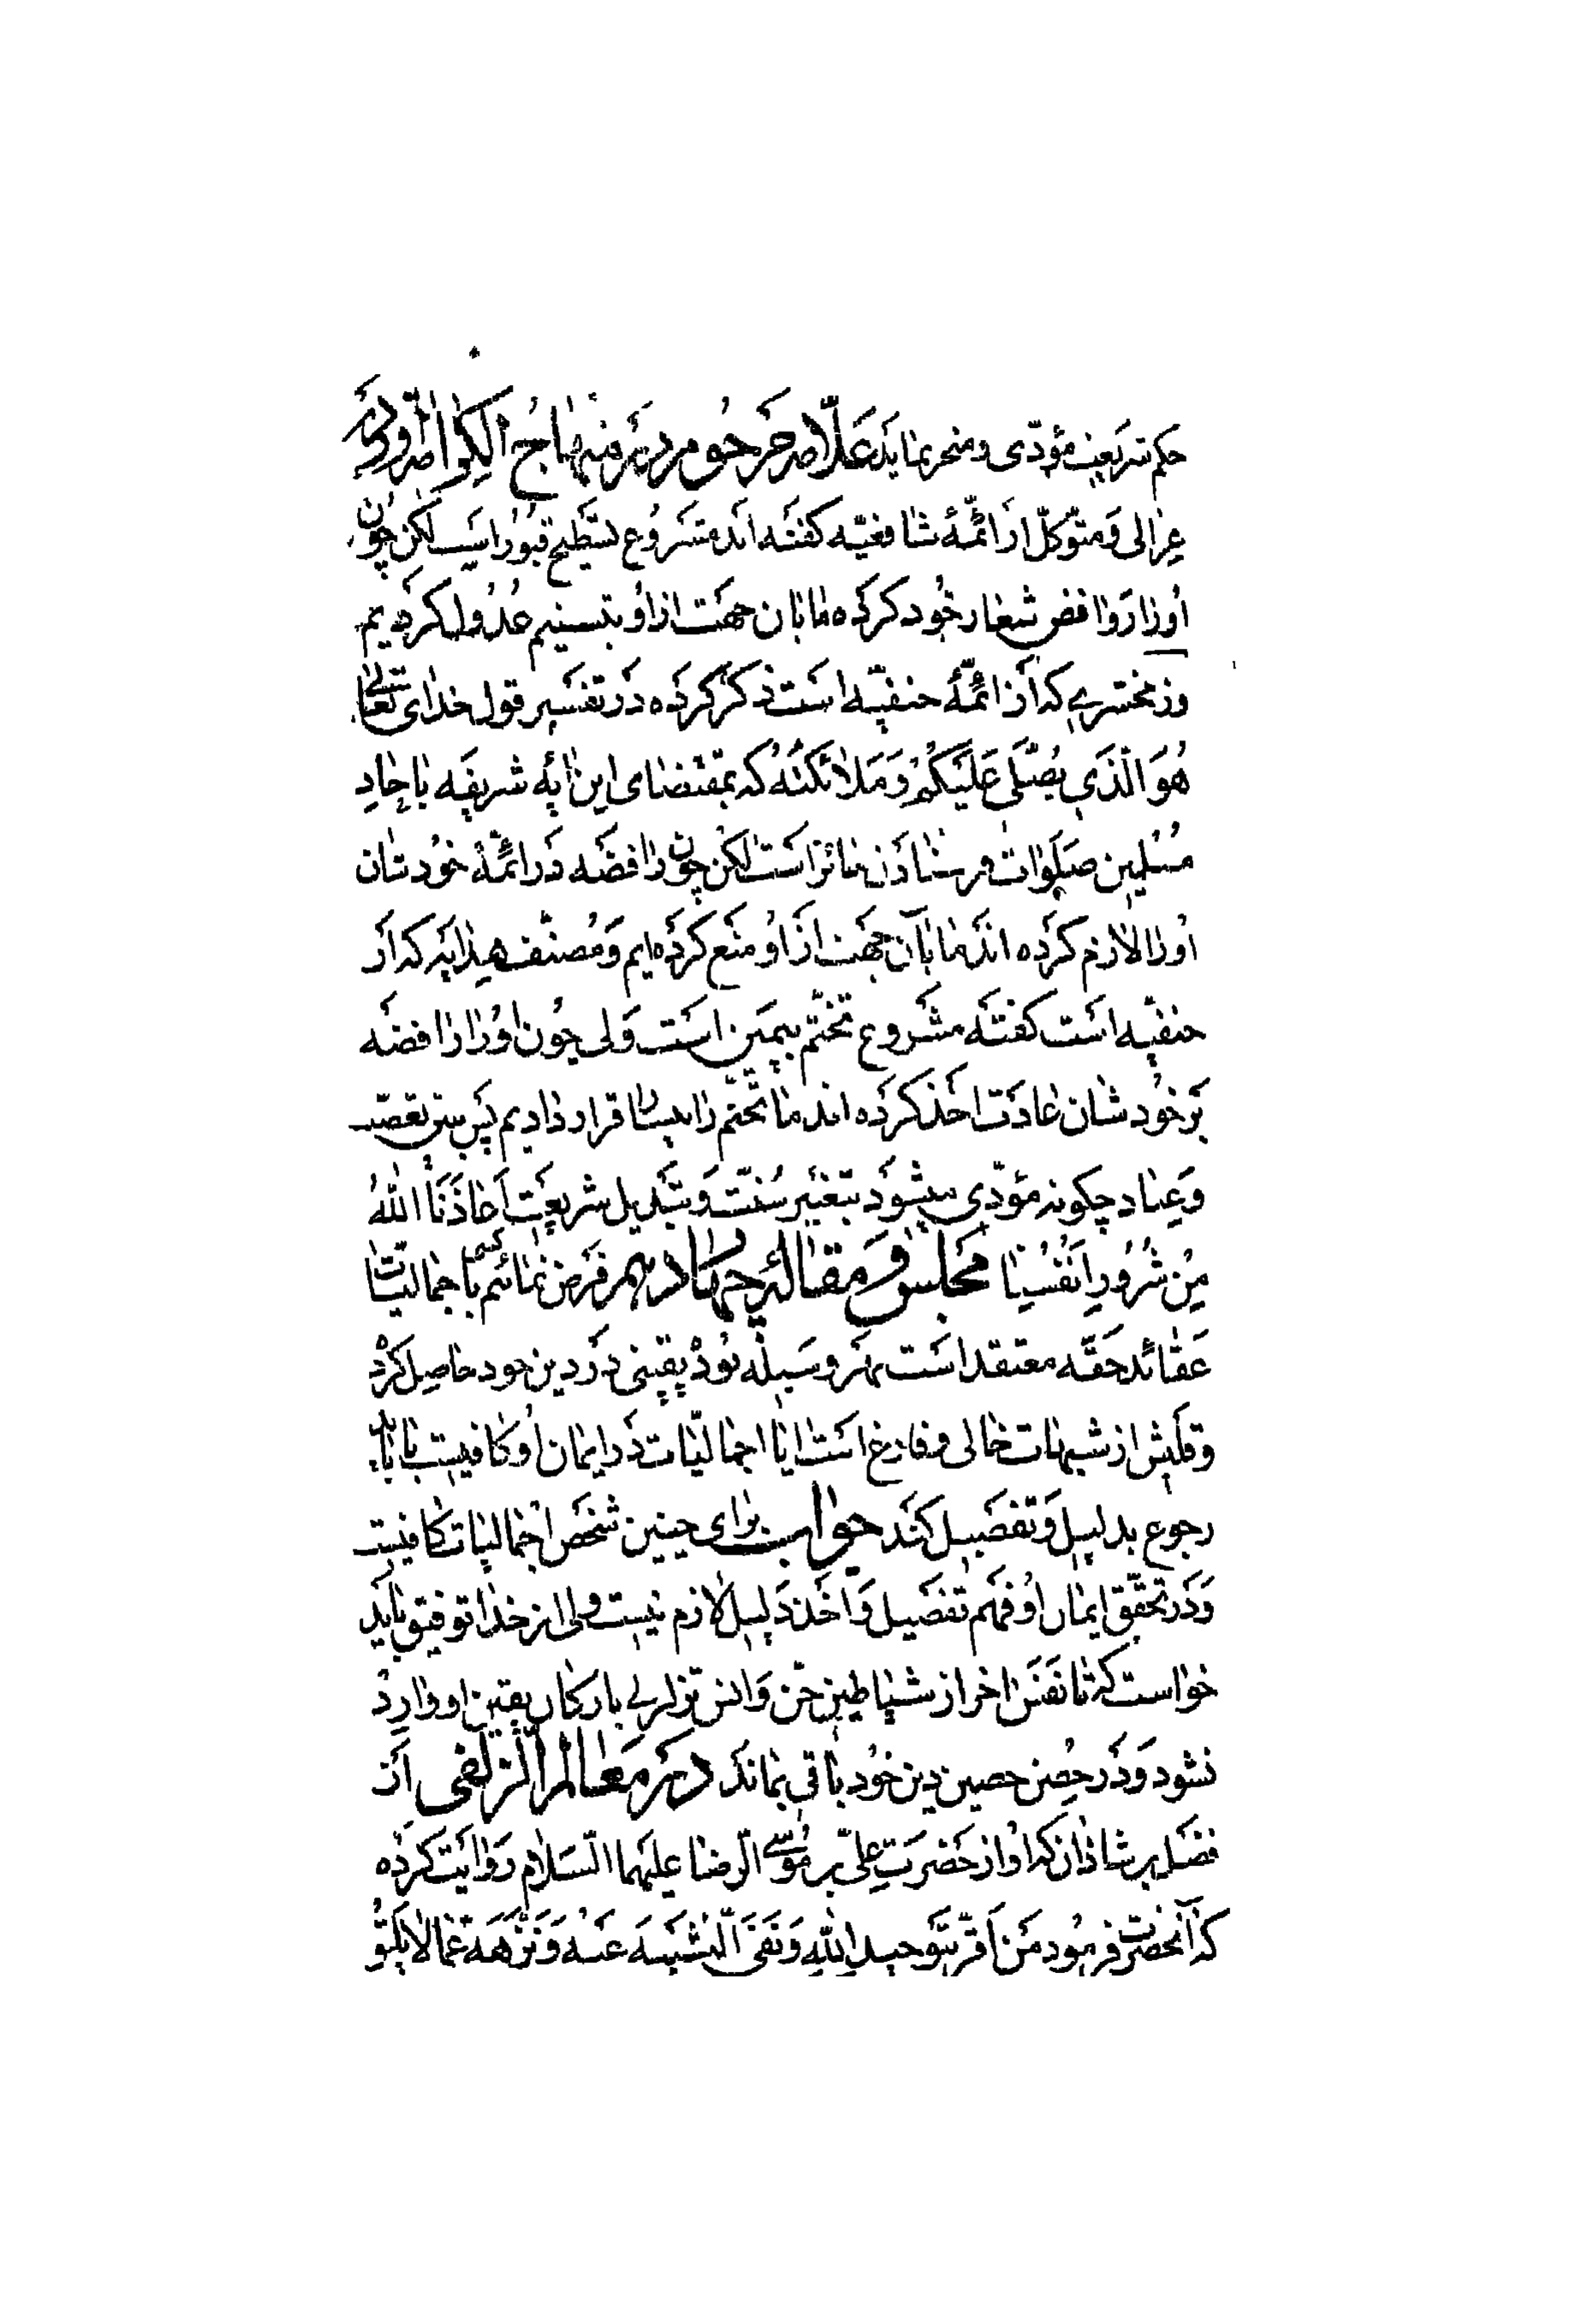 حکم شریعت مؤدّی و منجر نماید علّامه مرحوم در منهاج الکرامه آورده
غزالی و متوکّل از ائمّهٔ شافعیّه کفته اند مشروع تسطیح قبور است لکن چون
او را روافض شعار خود کرده ما بان جهت از او بتسنیم عدول کردیم
و زمخشری که از ائمّهٔ حنفیّه است ذکر کرده در تفسیر قول خدای تعالی
هُوَ الَّذی یُصَلّی عَلَیْکُمْ وَمَلائکَتُهُ که بمقتضای این ایه شریفه باحاد
مُسْلمین صلوات فرستادن جائز است لکن چون رافضه در ائمّهٔ خودشان
او را لازم کرده اند ما بآن جهت از او منع کرده ایم و مُصنّف هدایه که از
حنفیّه است کفته مشروع تختّم بیمین است ولی چون او را رافضه
بر خودشان عادت اخذ کرده اند ما تختّم را بیسار قرار دادیم پس ببین تعصّب
و عناد چکونه مؤدّی میشود بتغییر سُنّت و تبدیل شریعت اَعاذَنَا اللّهُ
مِنْ شُرُورِ اَنْفُسِنا مجلس و مقالهٔ چهاردهم فرض نمائیم کسی باجمالیّات
عقائد حقّه معتقد است بهر وسیله بود یقینی در دین خود حاصل کرد
و قلبش از شبهات خالی و فارغ است ایا اجمالیّات در ایمان او کافیست یا باید
رجوع بدلیل و تفصیل کند جواب برای چنین شخص اجمالیات کافیست
و در تحقّق ایمان او فهم تفصیل و اخذ دلیل لازم نیست ولی از خدا توفیق باید
خواست که تا نفس اخر از شیاطین جن و انس تزلزلی بارکان یقین او وارد
نشود و در حصن حصین دین خود باقی بماند در معالم الزلفی از
فضل بن شاذان که او از حضرت علیّ بن موسی الرّضا علیهما السّلام روایت کرده
که آنحضرت فرمود مَنْ اَقَرَّ بِتَوحیدِ اللّهِ وَنَفَی التَّشْبیهَ عَنْهُ وَنَزَّهَهُ عَمّا لا یَلیقُ